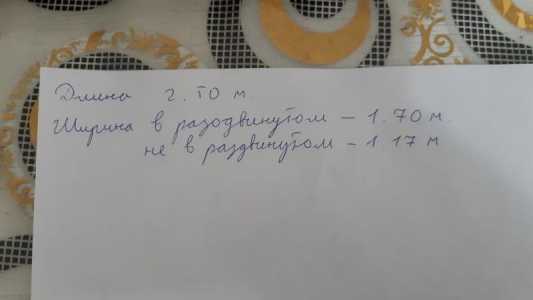 Длина 2.10 м.
Ширина в разодвинутом – 1.70 м.
не в раздвинутом – 1 17 м